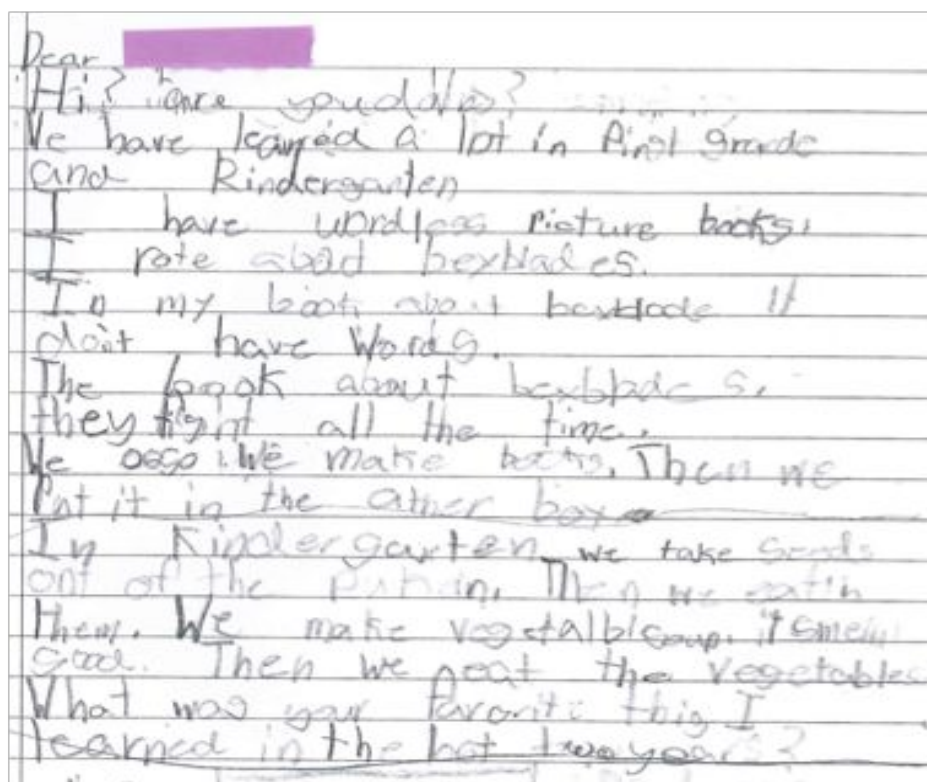 Dear
Hi? are you
We have learned a lot in first grade
and Kindergarten
I have wordless Picture books.
I rote abod beyblades.
In my book about beyblade it
doit have Words.
The book about beyblades.
they fight all the time.
We We make books. Then we
Put it in the ather box
In Kindergarten we take seeds
out of the Then we eatin
them. We make vegetalblsoup. it smell
good. Then we eat the vegetables
What was your favorite thig I
learned in the two years?